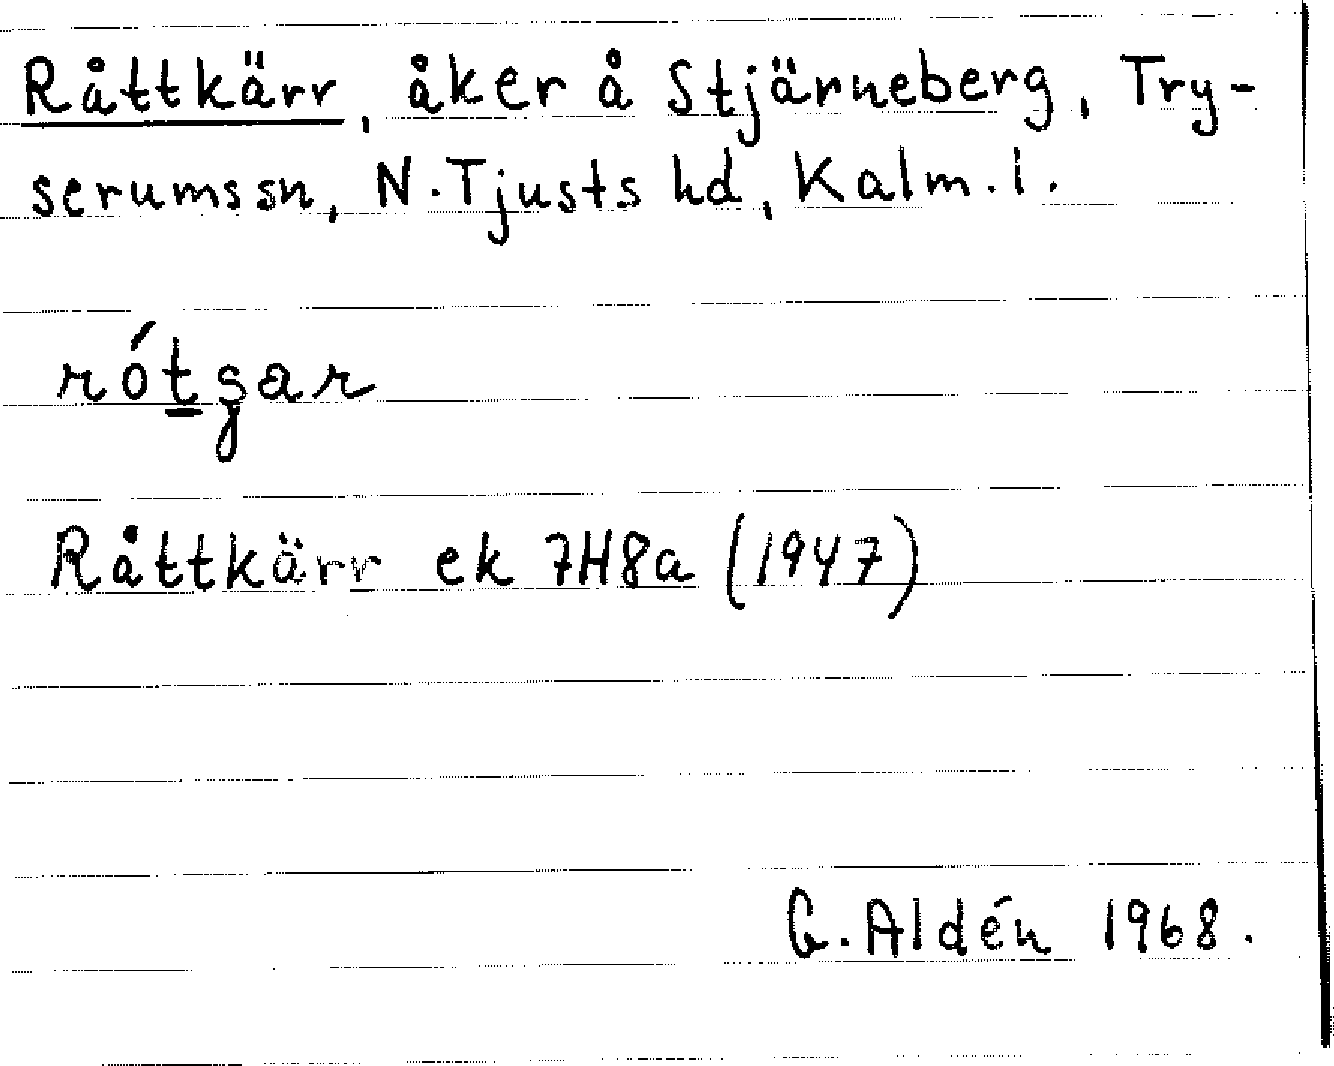 Råttkärr, åker å Stjärneberg, Try-
serums sn, N. Tjusts hd, Kalm. l.
rótgar
Råttkärr ek 7H8a (1947)
G. Aldén 1968.